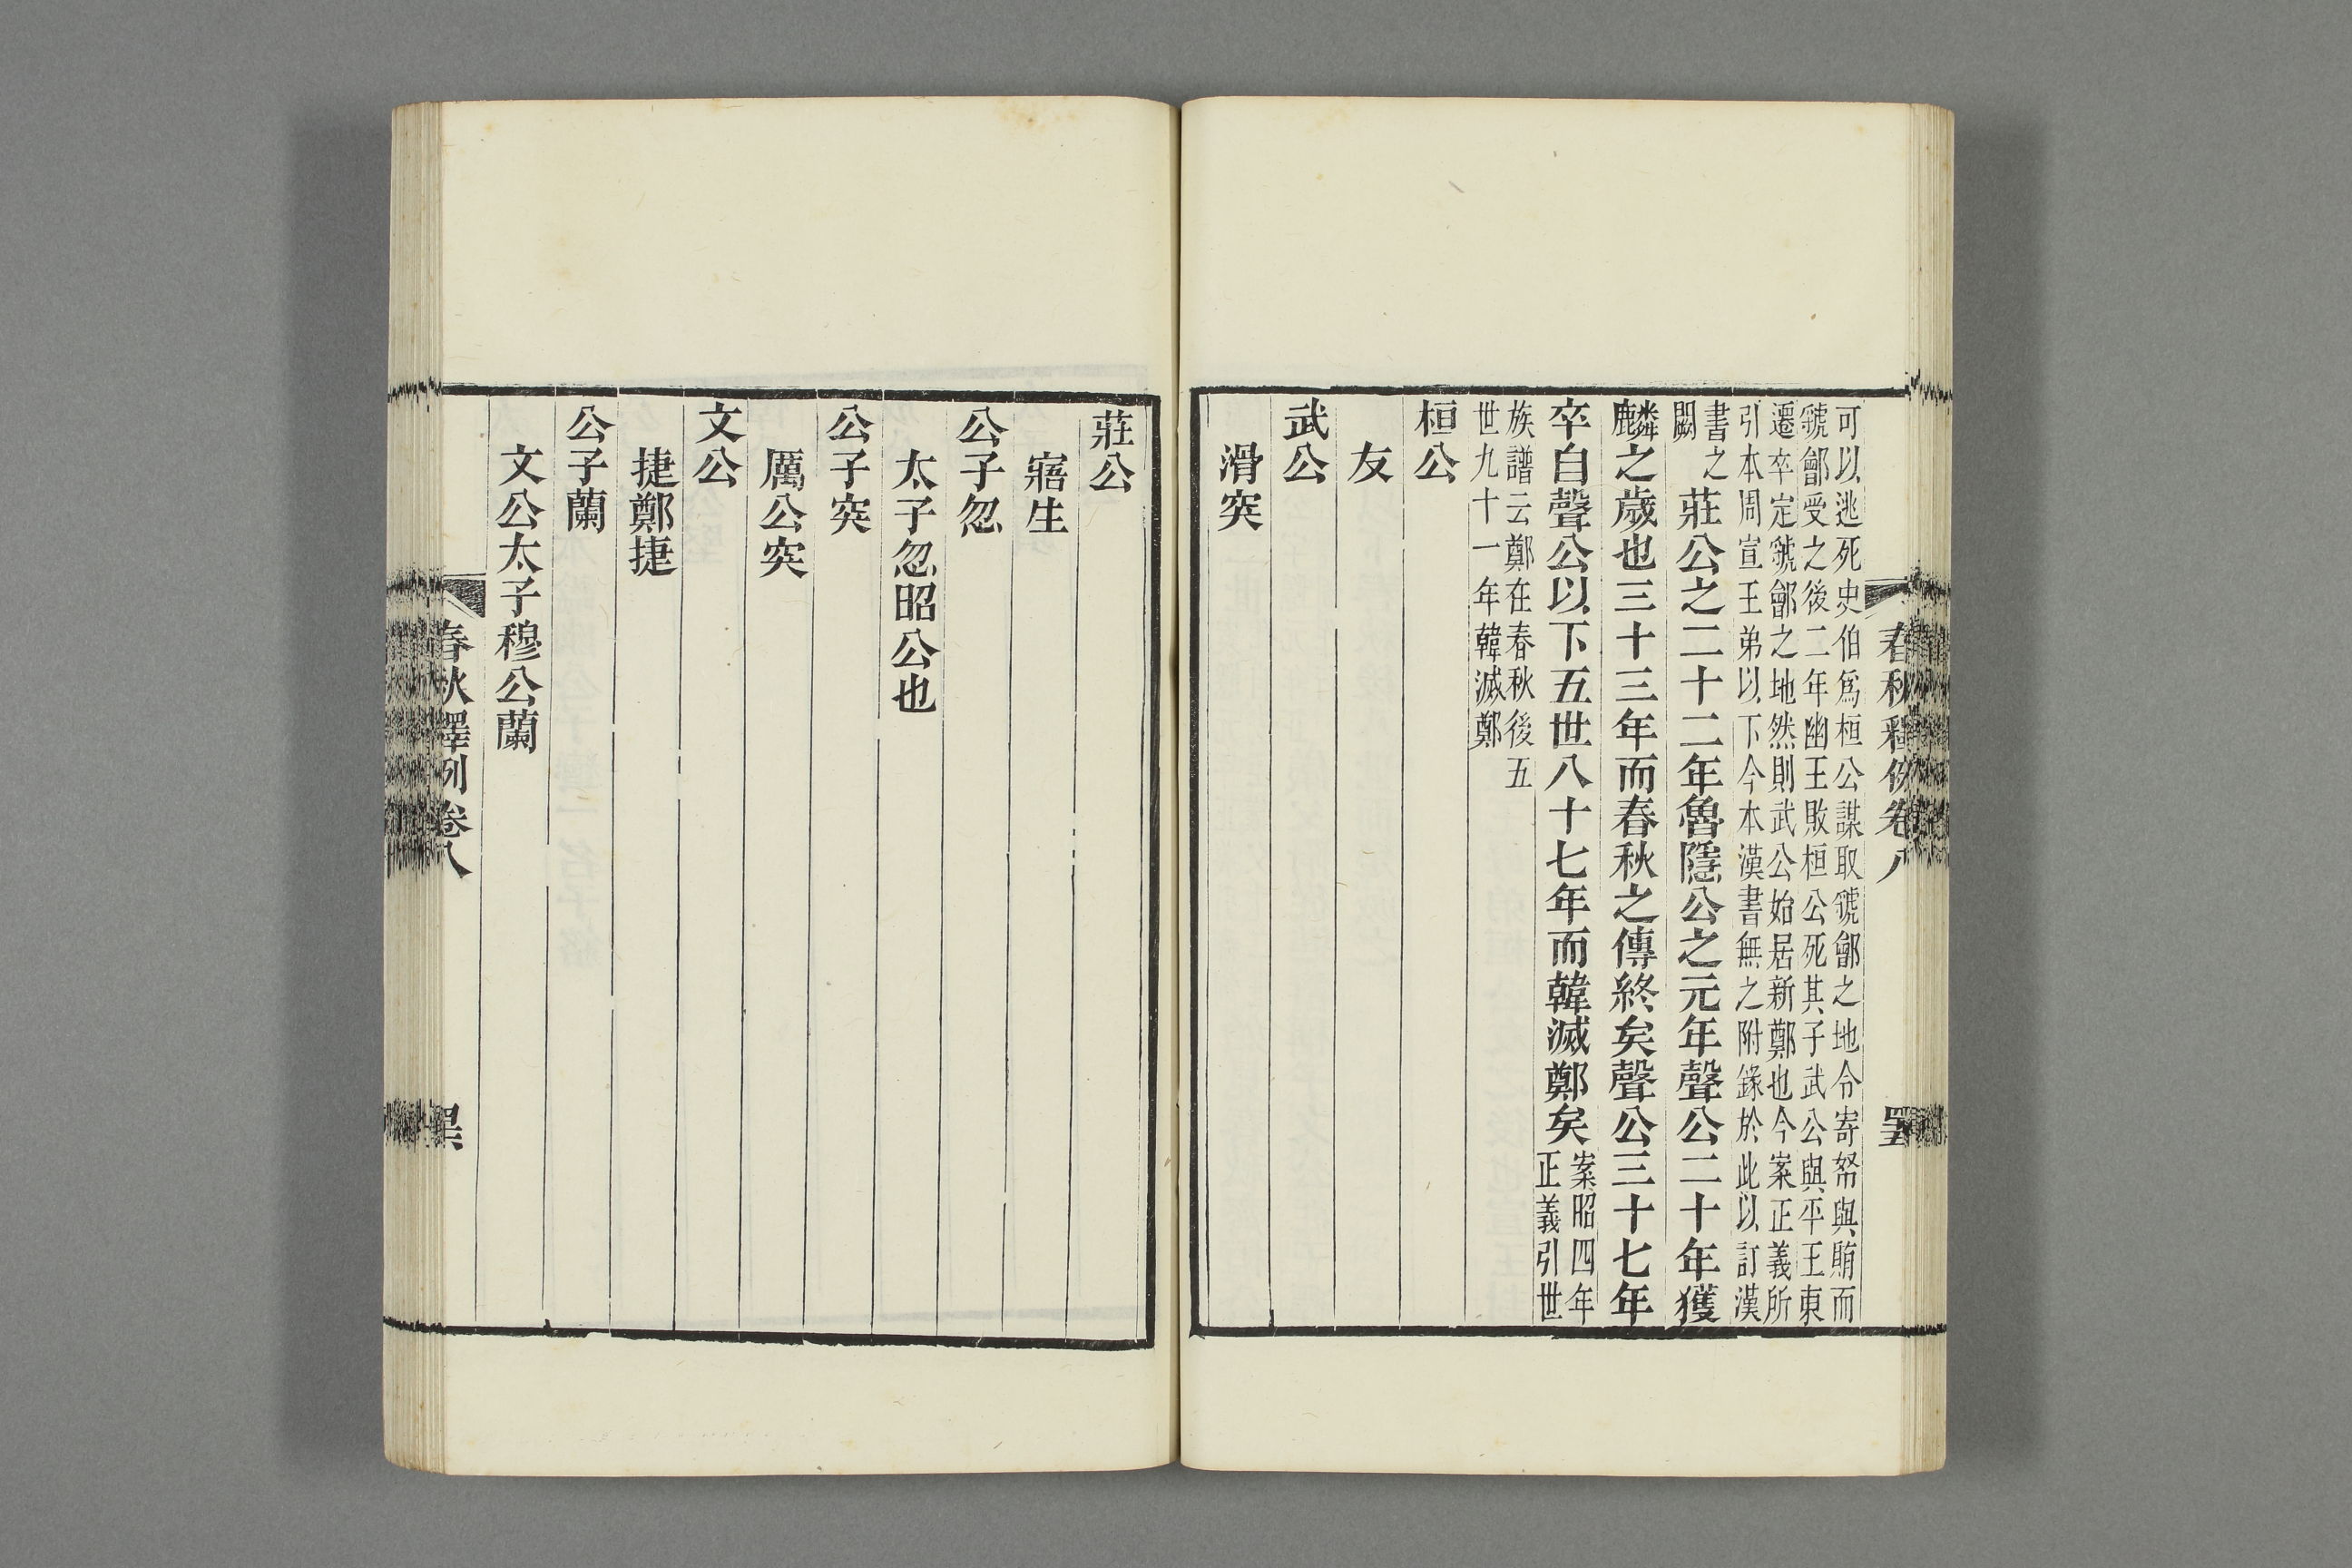 春秋釋例卷八
可以逃死史伯爲桓公謀取虢鄶之地令寄帑與賄而
虢鄶受之後二年幽王敗桓公死其子武公與平王東
遷卒定虢鄶之地然則武公始居新鄭也今案正義所
引本周宣王弟以下今本漢書無之附錄於此以訂漢
書之
闕
莊公之二十二年魯隱公之元年聲公二十年獲
麟之歲也三十三年而春秋之傳終矣聲公三十七年
卒自聲公以下五世八十七年而韓滅鄭矣
案昭四年
正義引世
族譜云鄭在春秋後五
世九十一年韓滅鄭
桓公
友
武公
滑突
莊公
寤生
公子忽
太子忽昭公也
公子突
厲公突
文公
捷鄭捷
公子蘭
文公太子穆公蘭
春秋釋例卷八